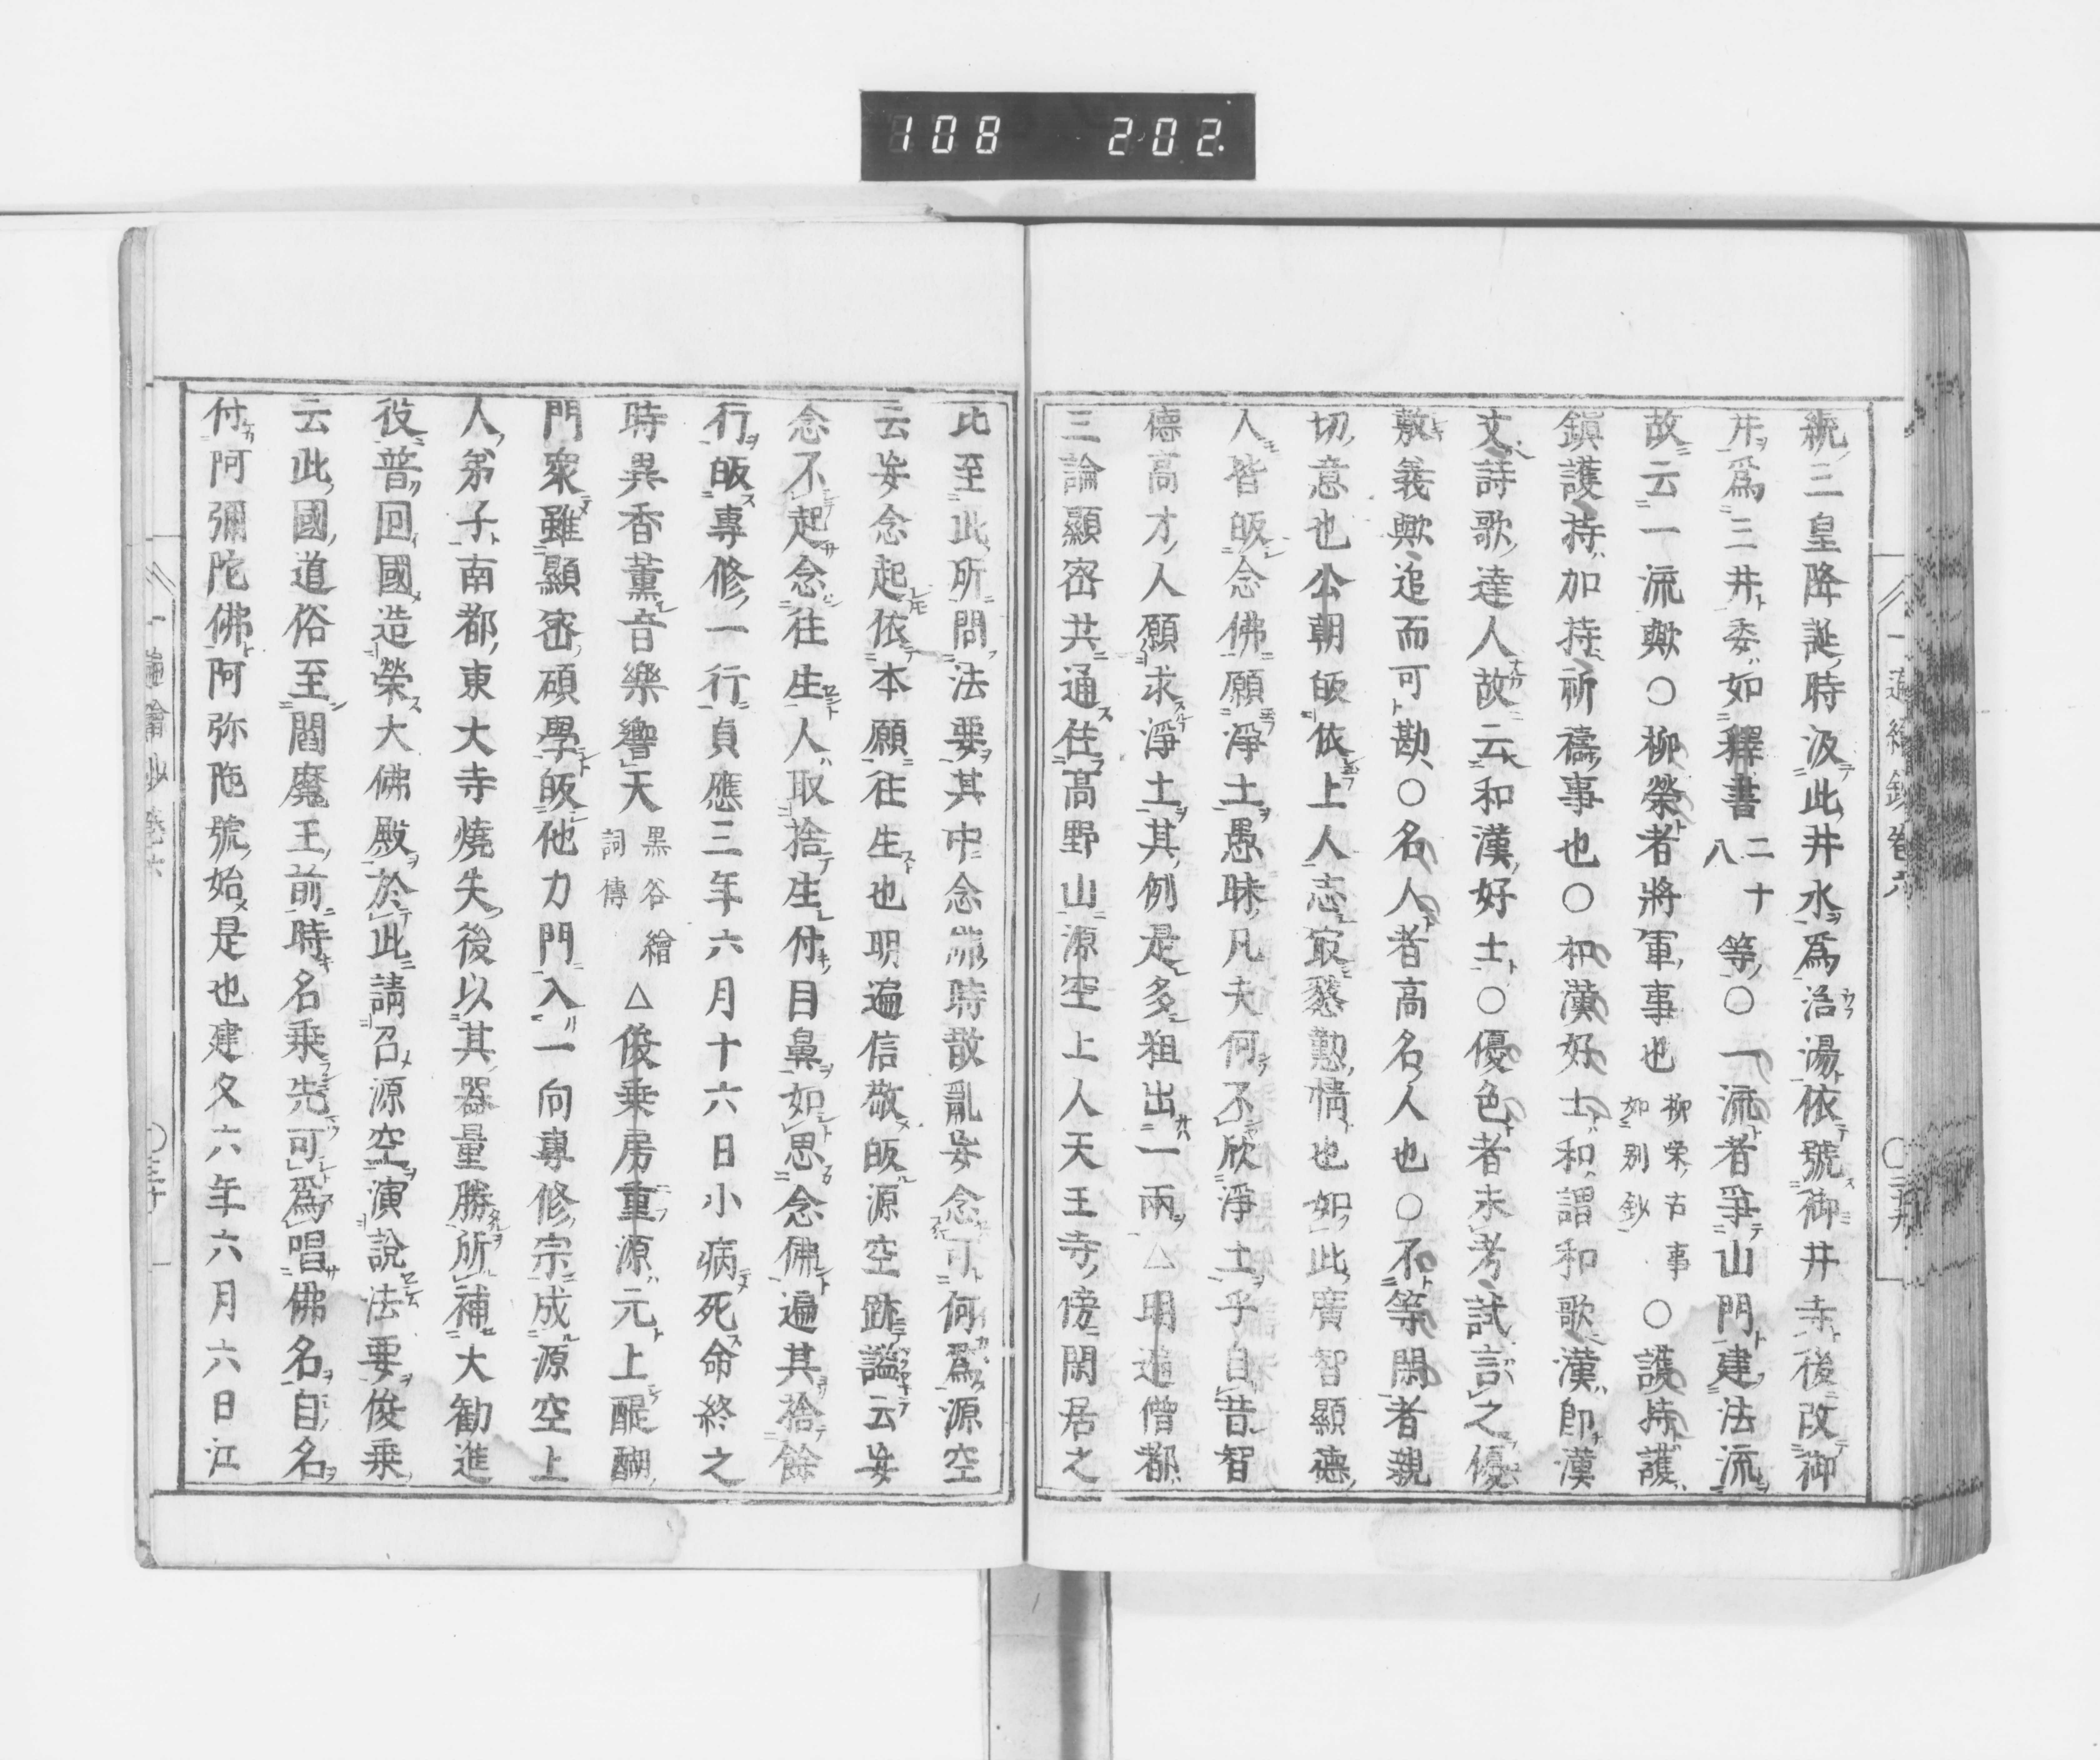 108 202
統三皇降誕時汲此井水爲浴湯依號御井寺後改御
井爲三井委如釋書二十八等○一流者爭山門建法流
故云一流歟○柳榮者將軍事也柳栄古事如別鈔○護持護
鎮護持加持祈禱事也○和漢好士和謂和歌漢卽漢
文詩歌達人故云和漢好士○優色者未考試言之優
敷義歟追而可勘○名人者高名人也○不等閑者親
切意也公朝皈依上人志㝡慇懃情也如此廣智顯德
人皆皈念佛願淨土愚昧凡夫何不欣淨土乎自昔智
德高才人願求淨土其例是多粗出一兩△明遍僧都
三論顯密共通住高野山源空上人天王寺傍閑居之
比至此所問法要其中念佛時散亂妄念可何爲源空
云妄念起依本願往生也明遍信敬皈源空跡謚云妄
念不起念往生人取捨生付目鼻如思念佛遍其捨餘
行皈專修一行貞應三年六月十六日小病死命終之
時異香薰音樂響天黒谷繪詞傳△俊乗房重源元上醍醐
門衆雖顯密碩學皈他力門入一向專修宗成源空上
人弟子南都東大寺燒失後以其器量勝所補大勸進
役普回國造榮大佛殿於此請召源空演說法要俊乗
云此國道俗至閻魔王前時名乗先可爲唱佛名自名
付阿彌陀佛阿弥陁號始是也建久六年六月六日江